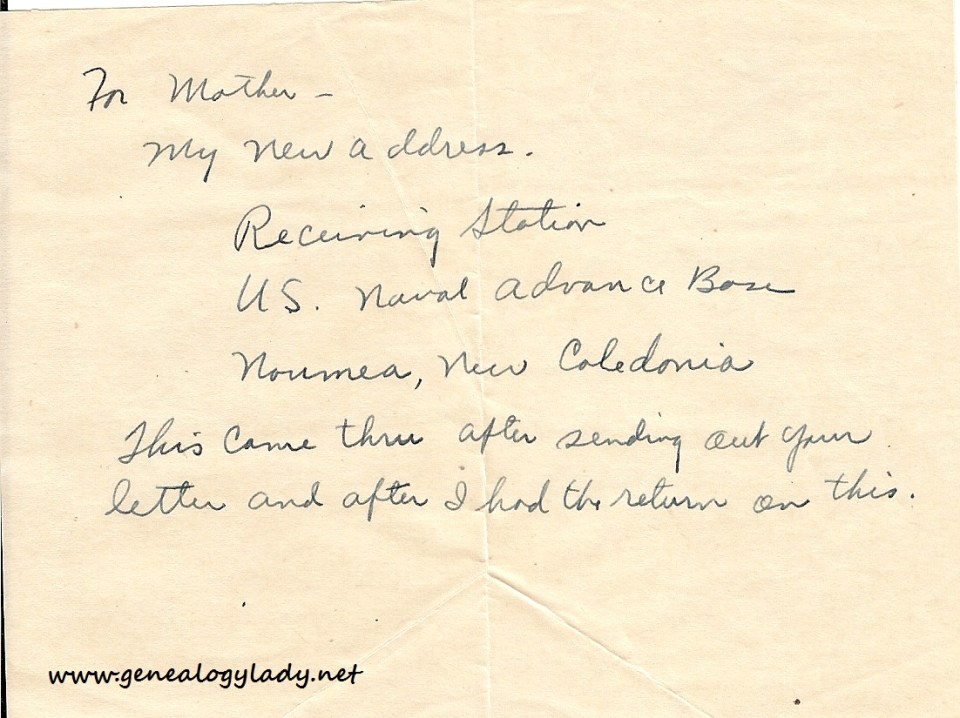 For Mother –
My new address.
Receiving Station
U.S. Naval Advance Base
Noumea, New Caledonia
This came thru after sending out your
letter and after I had the return on this.
www.genealogylady.net